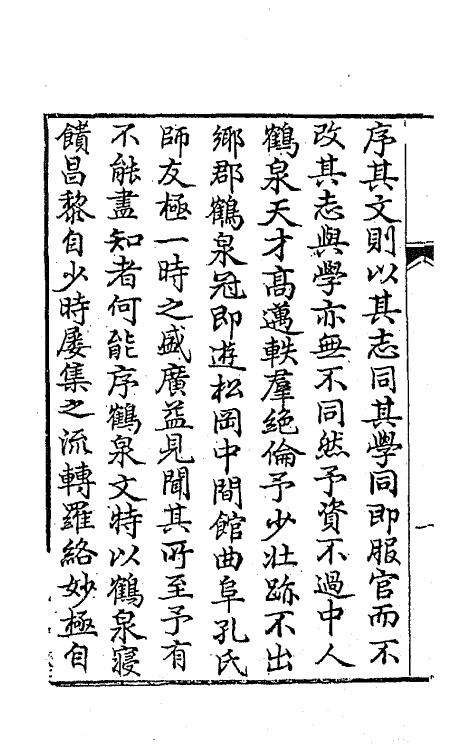 序其文則以其志同其學同即服官而不
改其志與學亦無不同然予資不過中人
鶴泉天才高邁軼羣絶倫予少壯跡不出
鄉郡鶴泉冠即遊松岡中間館曲阜孔氏
師友極一時之盛廣益見聞其所至予有
不能盡知者何能序鶴泉文特以鶴泉寢
饋昌黎自少時屡集之流轉羅絡妙極自
一